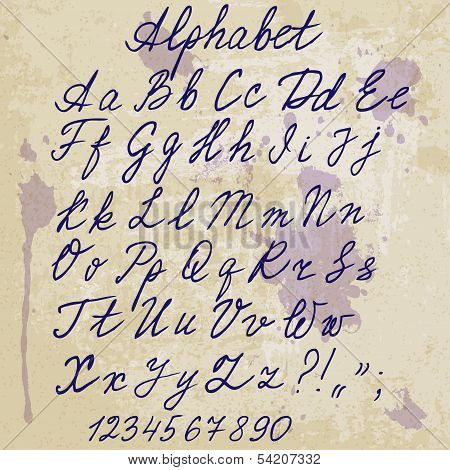 Alphabet
Aa Bb Cc Dd Ee
Ff Gg Hh Ii Jj
Kk Ll Mm Nn
Oo Pp Qq Rr Ss
Tt Uu Vv Ww
Xx Yy Zz ?! „ ” ;
1234567890
BIGSTOCK
Image ID: 54207332
bigstock.com